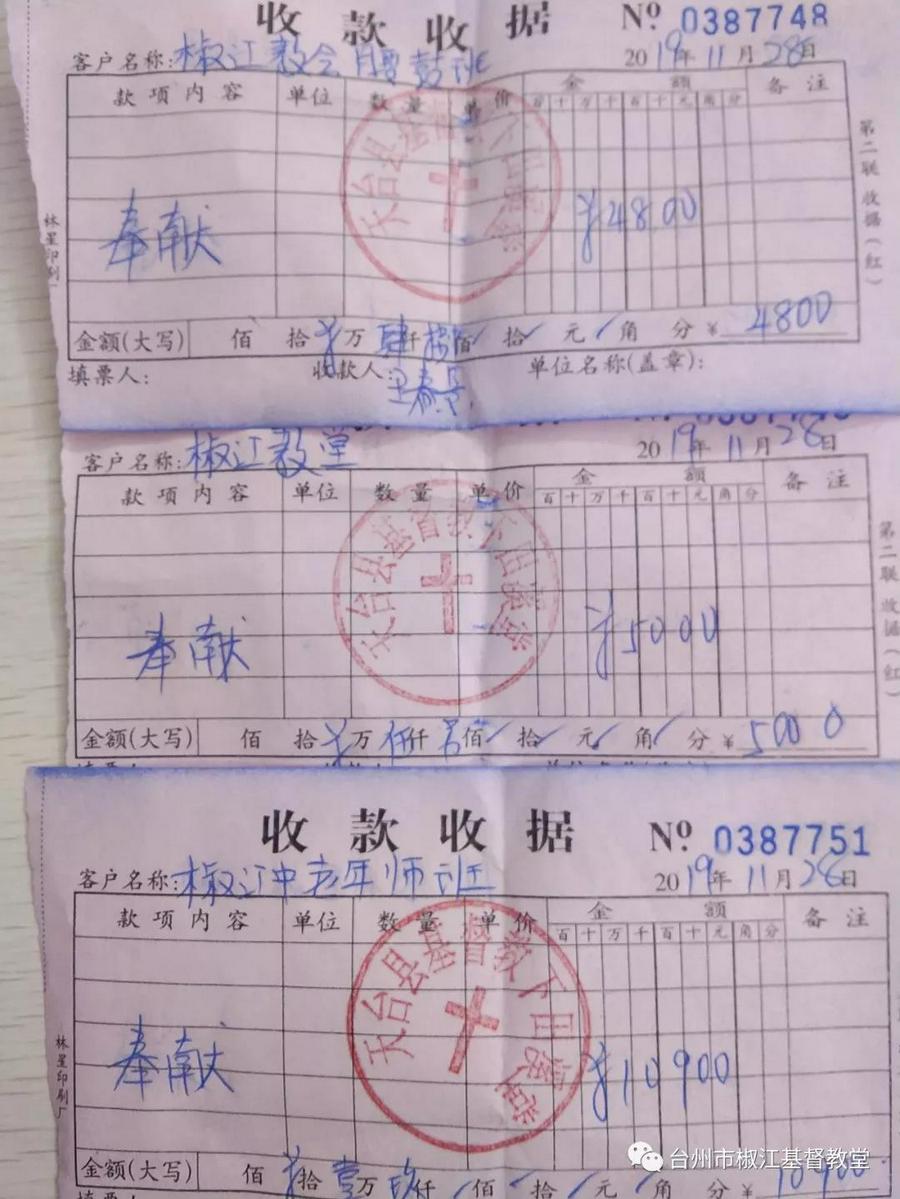 收款收据 № 0387748
客户名称:椒江教会腰鼓班 2019年11月28日
款项内容 单位 数量 单价 金额 备注
百十万千百十元角分
天台县基督教下田溪堂
奉献 ¥4800
第二联 收据(红)
林星印刷厂
金额(大写) 佰 拾 万 肆仟 捌佰 拾 元 角 分 ¥ 4800
填票人: 收款人: 单位名称(盖章):
客户名称:椒江教堂 2019年11月28日
款项内容 单位 数量 单价 金额 备注
百十万千百十元角分
天台县基督教下田溪堂
奉献 ¥5000
第二联 收据(红)
金额(大写) 佰 拾 万 伍仟 佰 拾 元 角 分 ¥ 5000
收款收据 № 0387751
客户名称:椒江中老年师班 2019年11月28日
款项内容 单位 数量 单价 金额 备注
百十万千百十元角分
天台县基督教下田溪堂
奉献 ¥10900
林星印刷厂
金额(大写) 佰 拾 壹万 玖仟 佰 拾 元 角 分 ¥ 10900
填票人:
台州市椒江基督教堂